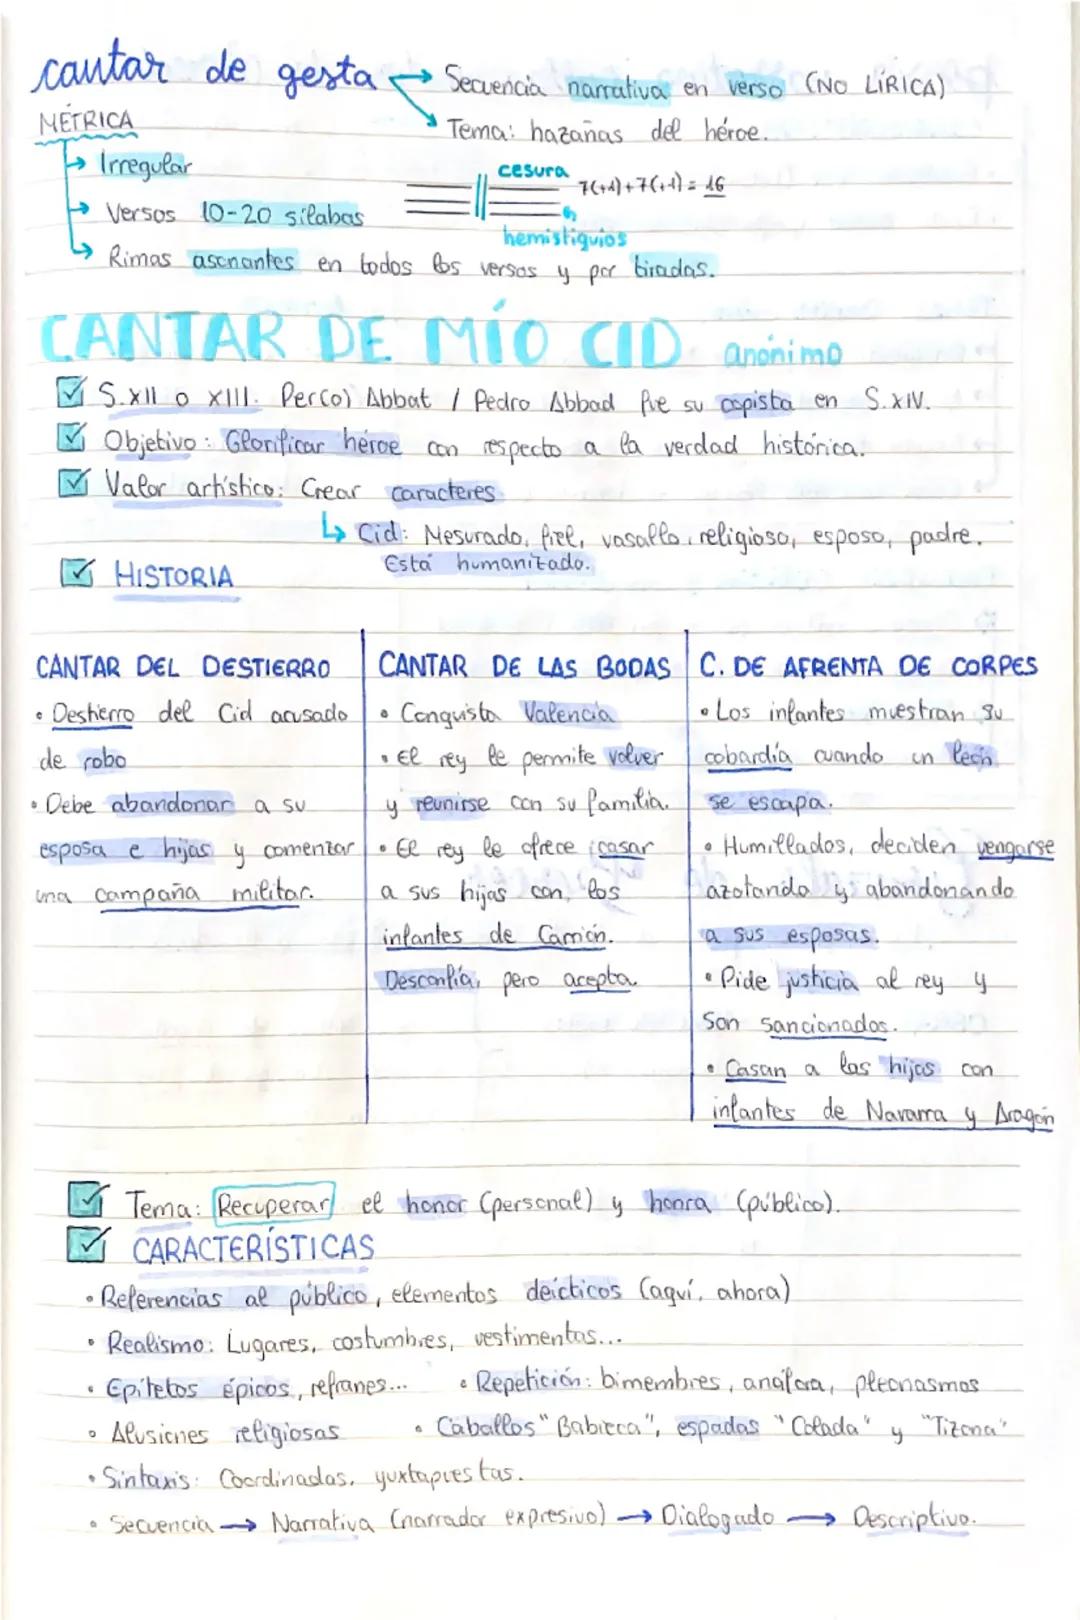 cantar de gesta → Secuencia narrativa en verso (NO LÍRICA)
→ Tema: hazañas del héroe.
MÉTRICA
→ Irregular
cesura
7(+1)+7(+1) = 16
→ Versos 10-20 sílabas
hemistiquios
→ Rimas asonantes en todos los versos y por tiradas.
CANTAR DE MÍO CID anónimo
S.XII o XIII. Per(o) Abbat / Pedro Abbad fue su copista en S.XIV.
Objetivo: Glorificar héroe con respecto a la verdad histórica.
Valor artístico: Crear caracteres
↳ Cid: Mesurado, fiel, vasallo, religioso, esposo, padre.
Está humanizado.
HISTORIA
CANTAR DEL DESTIERRO
• Destierro del Cid acusado
de robo
• Debe abandonar a su
esposa e hijas y comenzar
una campaña militar.
CANTAR DE LAS BODAS
• Conquista Valencia
• El rey le permite volver
y reunirse con su familia.
• El rey le ofrece casar
a sus hijas con los
infantes de Carrión.
Desconfía, pero acepta.
C. DE AFRENTA DE CORPES
• Los infantes muestran su
cobardía cuando un león
se escapa.
• Humillados, deciden vengarse
azotando y abandonando
a sus esposas.
• Pide justicia al rey y
son sancionados.
• Casan a las hijas con
infantes de Navarra y Aragón
Tema: Recuperar el honor (personal) y honra (público).
CARACTERÍSTICAS
• Referencias al público, elementos deícticos (aquí, ahora)
• Realismo: Lugares, costumbres, vestimentas...
• Epítetos épicos, refranes... • Repetición: bimembres, anáfora, pleonasmos
• Alusiones religiosas • Caballos "Babieca", espadas "Colada" y "Tizona"
• Sintaxis: Coordinadas, yuxtapuestas.
• Secuencia → Narrativa (narrador expresivo) → Dialogado → Descriptivo.